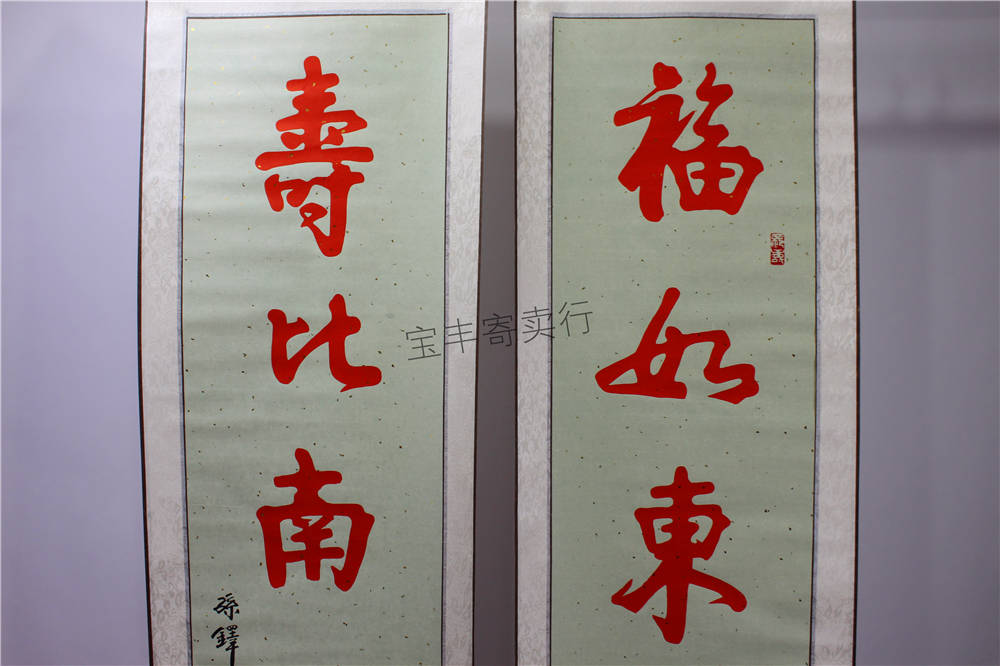 福如東
壽比南
孫鐸
宝丰寄卖行